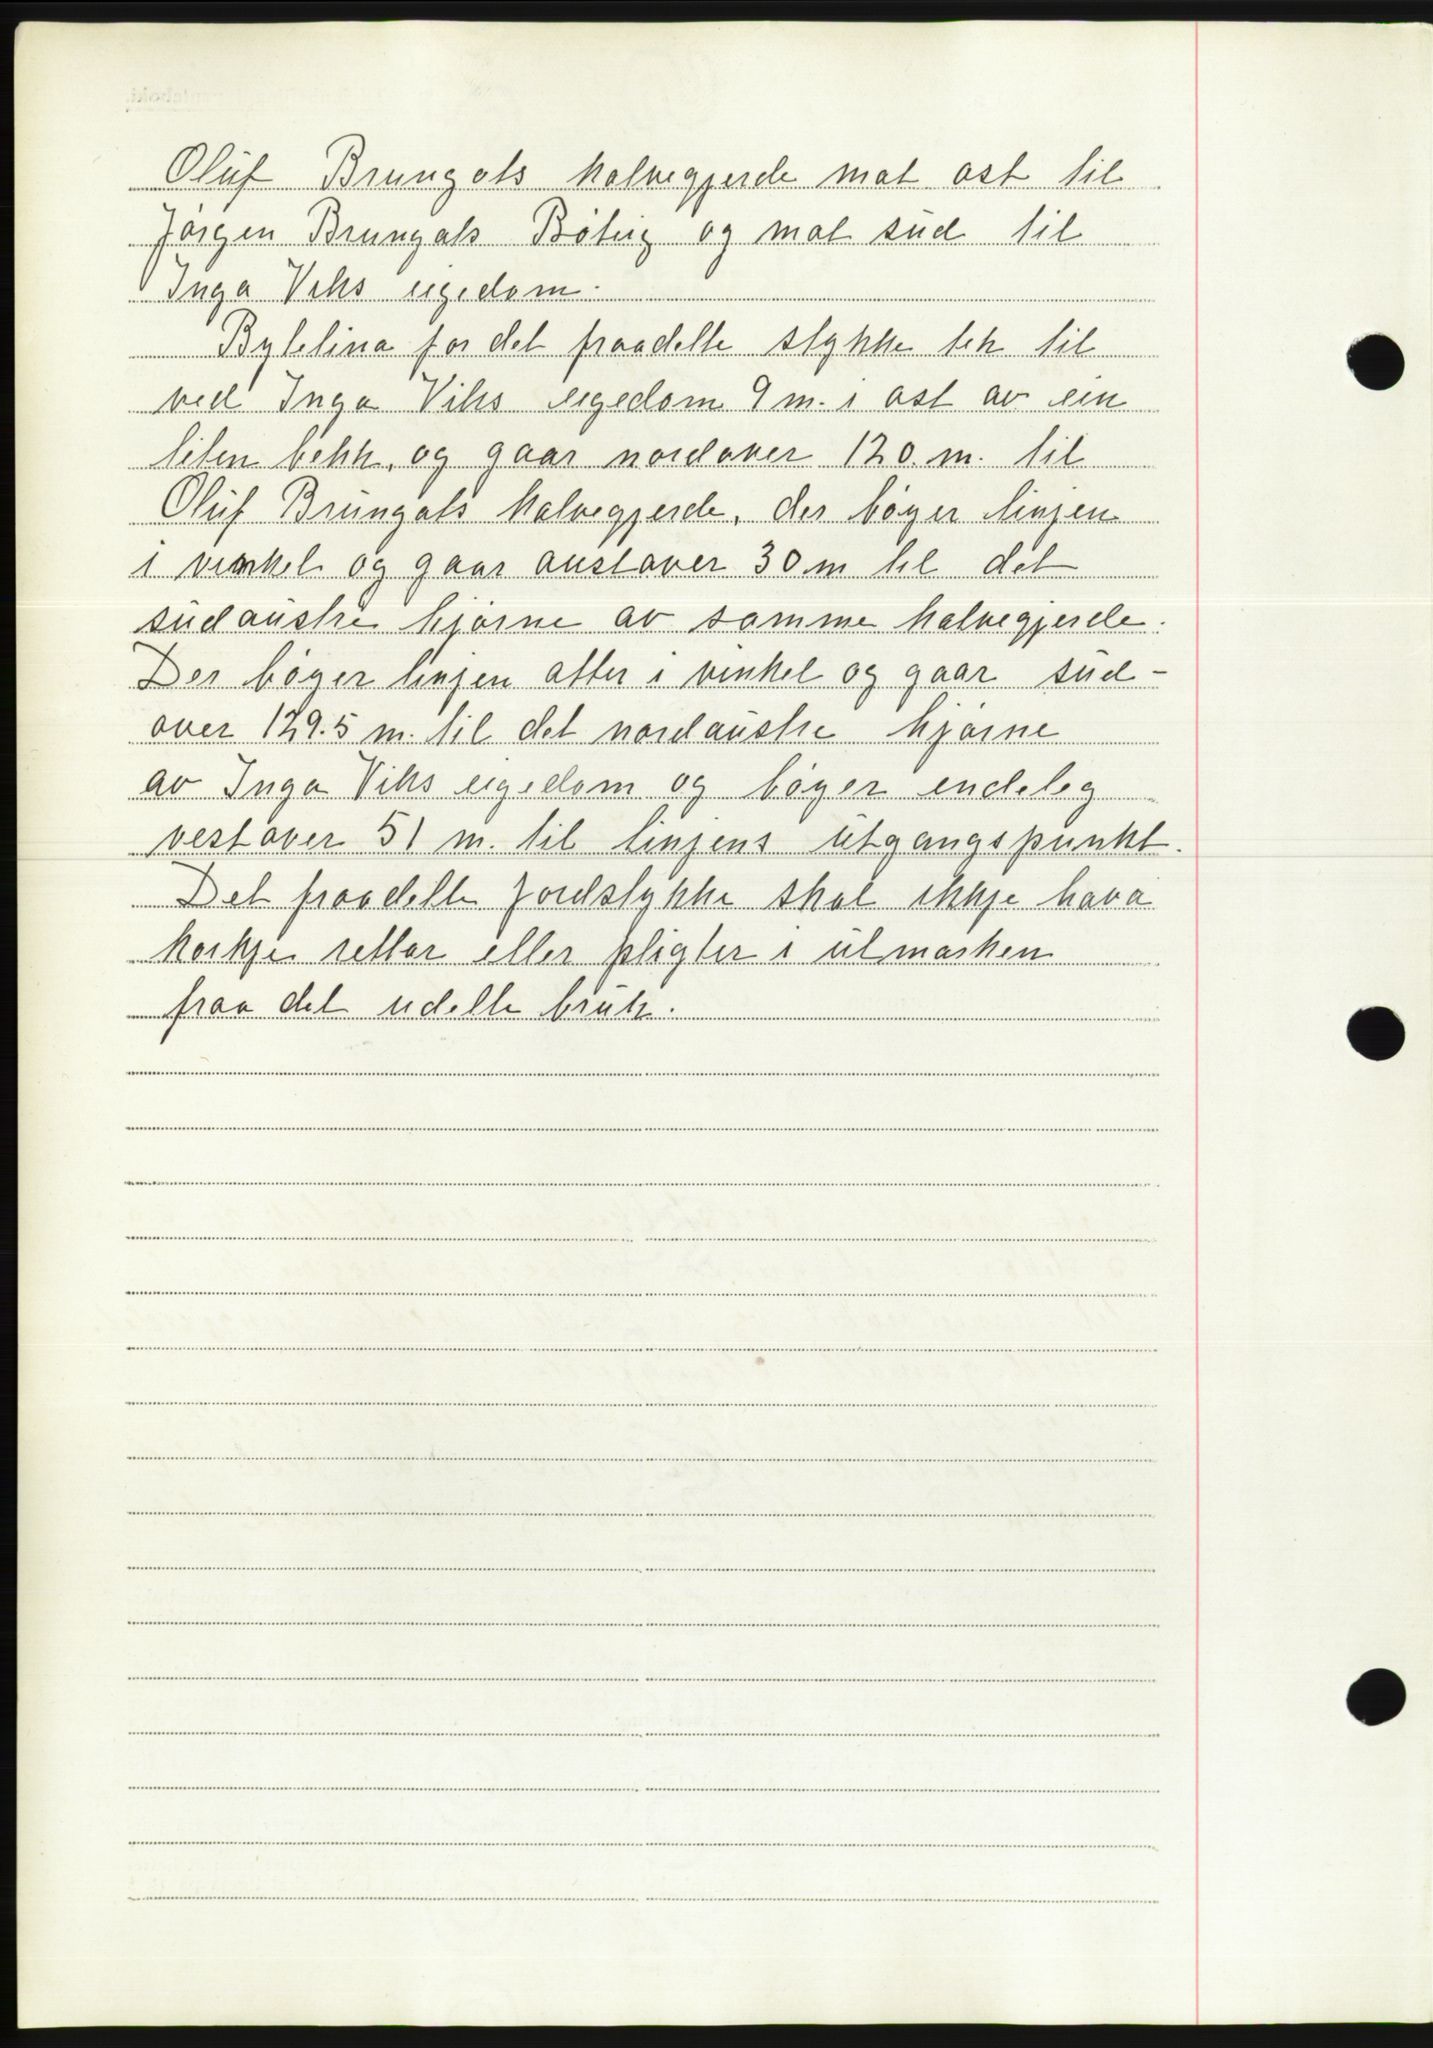 Oluf Brungots kalvegjerde mot ost til
Jørgen Brungots Bøteig og mot sud til
Inga Viks eigedom.
Bytelina for det fraadelte stykke tek til
ved Inga Viks eigedom 9 m. i ost av ein
liten bekk, og gaar nordover 120. m. til
Oluf Brungots kalvegjerde, der bøyer linjen
i vinkel og gaar austover 30 m til det
sudaustre hjørne av somme kalvegjerde.
Der bøyer linjen atter i vinkel og gaar sud-
over 129.5 m. til det nordaustre hjørne
av Inga Viks eigedom og bøyer endeleg
vestover 51 m. til linjens utgangspunkt.
Det fraadelte jordstykke skal ikkje hava
korkje rettar eller pligter i utmarken
fraa det udelte bruk.